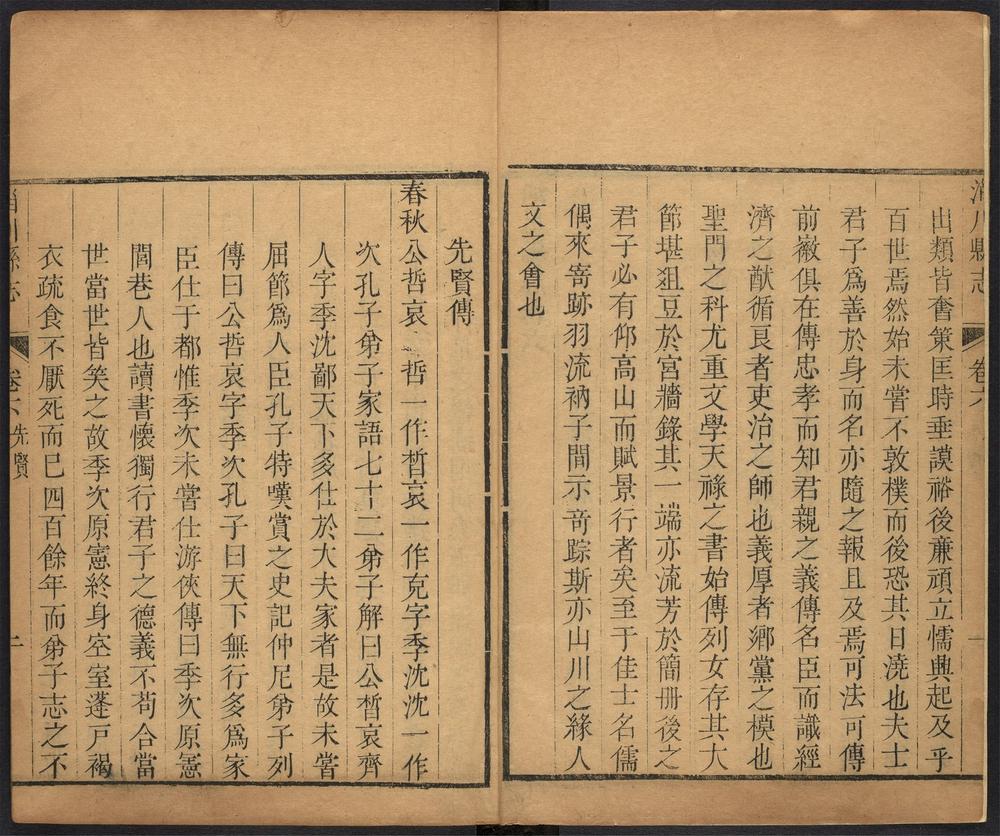 淄川縣志 卷六 一
出類皆奮策匡時垂謨裕後亷頑立懦興起及乎
百世焉然始未甞不敦樸而後恐其日澆也夫士
君子爲善於身而名亦隨之報且及焉可法可傳
前徽俱在傳忠孝而知君親之義傳名臣而識經
濟之猷循良者吏治之師也義厚者鄉黨之模也
聖門之科尤重文學天祿之書始傳列女存其大
節堪俎豆於宮牆錄其一端亦流芳於簡冊後之
君子必有仰高山而賦景行者矣至于佳士名儒
偶來寄跡羽流衲子間示竒踪斯亦山川之緣人
文之會也
先賢傳
春秋公哲哀 哲一作晢哀一作克字季沈沈一作
次孔子弟子家語七十二弟子解曰公晳哀齊
人字季沈鄙天下多仕於大夫家者是故未甞
屈節爲人臣孔子特嘆賞之史記仲尼弟子列
傳曰公哲哀字季次孔子曰天下無行多爲家
臣仕于都惟季次未甞仕游俠傳曰季次原憲
閭巷人也讀書懷獨行君子之德義不苟合當
世當世皆笑之故季次原憲終身空室蓬戸褐
衣疏食不厭死而已四百餘年而弟子志之不
淄川縣志 卷六 先賢 二